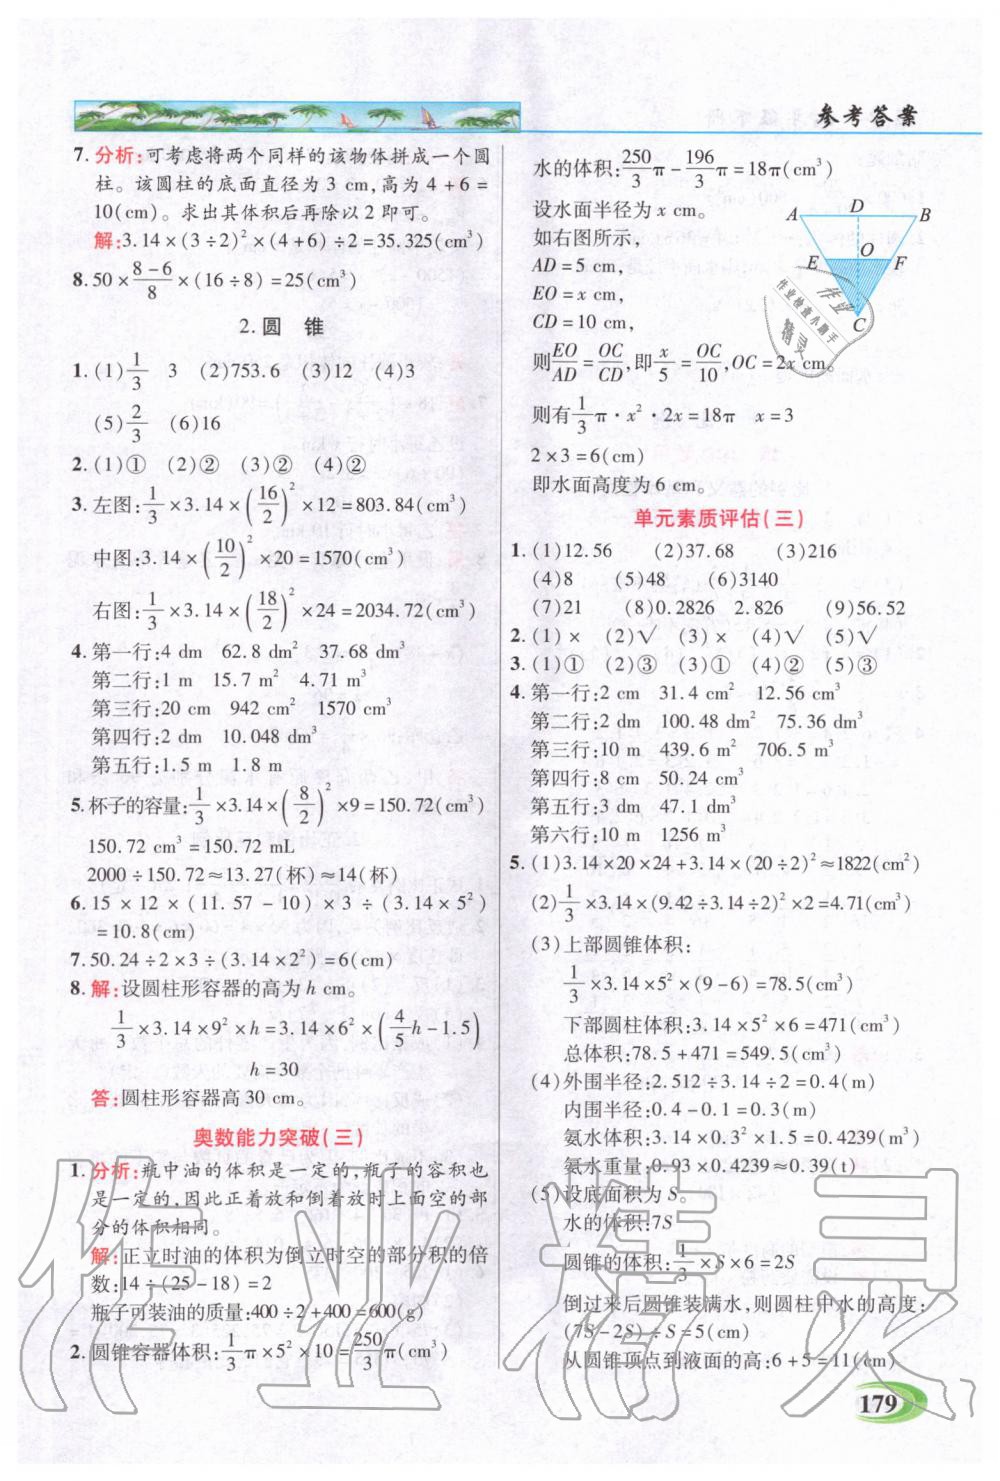 参考答案
7. 分析:可考虑将两个同样的该物体拼成一个圆
柱。该圆柱的底面直径为 3 cm,高为 4+6=
10(cm)。求出其体积后再除以 2 即可。
解:3.14×(3÷2)²×(4+6)÷2=35.325(cm³)
8. 50×(8-6)/8×(16÷8)=25(cm³)
2. 圆 锥
1. (1)1/3 3 (2)753.6 (3)12 (4)3
(5)2/3 (6)16
2. (1)① (2)② (3)② (4)②
3. 左图:1/3×3.14×(16/2)²×12=803.84(cm³)
中图:3.14×(10/2)²×20=1570(cm³)
右图:1/3×3.14×(18/2)²×24=2034.72(cm³)
4. 第一行:4 dm 62.8 dm² 37.68 dm³
第二行:1 m 15.7 m² 4.71 m³
第三行:20 cm 942 cm² 1570 cm³
第四行:2 dm 10.048 dm³
第五行:1.5 m 1.8 m
5. 杯子的容量:1/3×3.14×(8/2)²×9=150.72(cm³)
150.72 cm³=150.72 mL
2000÷150.72≈13.27(杯)≈14(杯)
6. 15×12×(11.57-10)×3÷(3.14×5²)
=10.8(cm)
7. 50.24÷2×3÷(3.14×2²)=6(cm)
8. 解:设圆柱形容器的高为 h cm。
1/3×3.14×9²×h=3.14×6²×(4/5h-1.5)
h=30
答:圆柱形容器高 30 cm。
奥数能力突破(三)
1. 分析:瓶中油的体积是一定的,瓶子的容积也
是一定的,因此正着放和倒着放时上面空的部
分的体积相同。
解:正立时油的体积为倒立时空的部分积的倍
数:14÷(25-18)=2
瓶子可装油的质量:400÷2+400=600(g)
2. 圆锥容器体积:1/3π×5²×10=250/3π(cm³)
水的体积:250/3π-196/3π=18π(cm³)
设水面半径为 x cm。
如右图所示,
AD=5 cm,
EO=x cm,
CD=10 cm,
则EO/AD=OC/CD,即x/5=OC/10,OC=2x cm。
则有1/3π·x²·2x=18π x=3
2×3=6(cm)
即水面高度为 6 cm。
A D B
E O F
C
单元素质评估(三)
1. (1)12.56 (2)37.68 (3)216
(4)8 (5)48 (6)3140
(7)21 (8)0.2826 2.826 (9)56.52
2. (1)× (2)√ (3)× (4)√ (5)√
3. (1)① (2)③ (3)① (4)② (5)③
4. 第一行:2 cm 31.4 cm² 12.56 cm³
第二行:2 dm 100.48 dm² 75.36 dm³
第三行:10 m 439.6 m² 706.5 m³
第四行:8 cm 50.24 cm³
第五行:3 dm 47.1 dm³
第六行:10 m 1256 m³
5. (1)3.14×20×24+3.14×(20÷2)²≈1822(cm²)
(2)1/3×3.14×(9.42÷3.14÷2)²×2=4.71(cm³)
(3)上部圆锥体积:
1/3×3.14×5²×(9-6)=78.5(cm³)
下部圆柱体积:3.14×5²×6=471(cm³)
总体积:78.5+471=549.5(cm³)
(4)外围半径:2.512÷3.14÷2=0.4(m)
内围半径:0.4-0.1=0.3(m)
氨水体积:3.14×0.3²×1.5=0.4239(m³)
氨水重量:0.93×0.4239≈0.39(t)
(5)设底面积为 S。
水的体积:7S
圆锥的体积:1/3×S×6=2S
倒过来后圆锥装满水,则圆柱中水的高度:
(7S-2S)÷S=5(cm)
从圆锥顶点到液面的高:6+5=11(cm)
179
作业精灵
作业
作业检查小助手
精灵